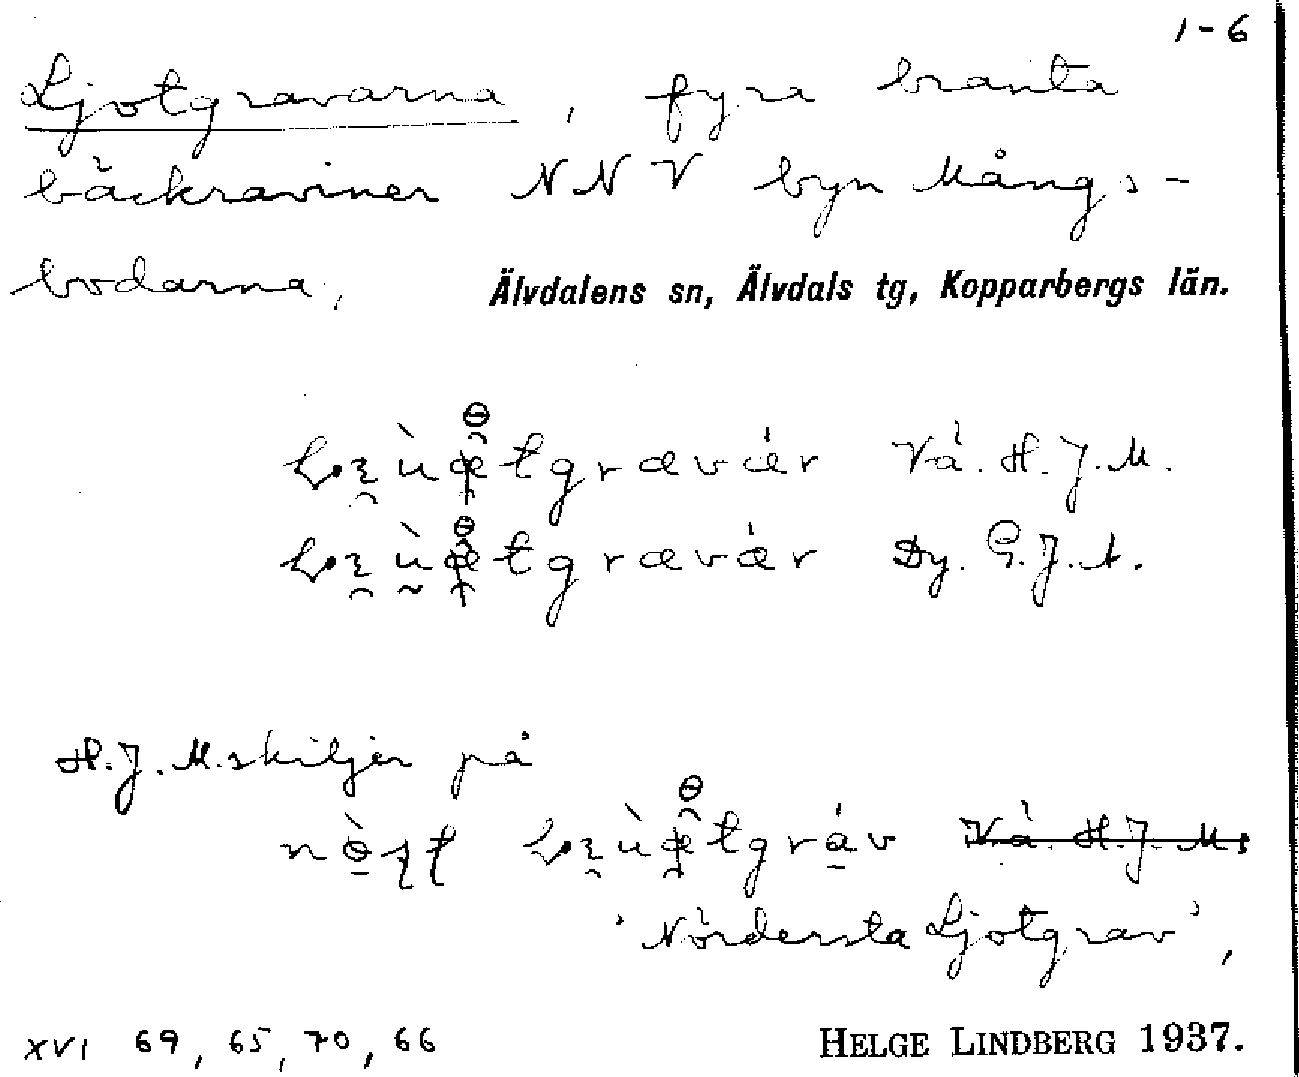 1-6
Ljotgravarna, fyra branta
bäckraviner NNV byn Mångs-
bodarna,
Älvdalens sn, Älvdals tg, Kopparbergs län.
Vå. H. J. M.
Dy. G. J. A.
H. J. M. skiljer på
Vå H. J. M.
'Nördersta Ljotgrav',
XVI 69, 65, 70, 66
HELGE LINDBERG 1937.